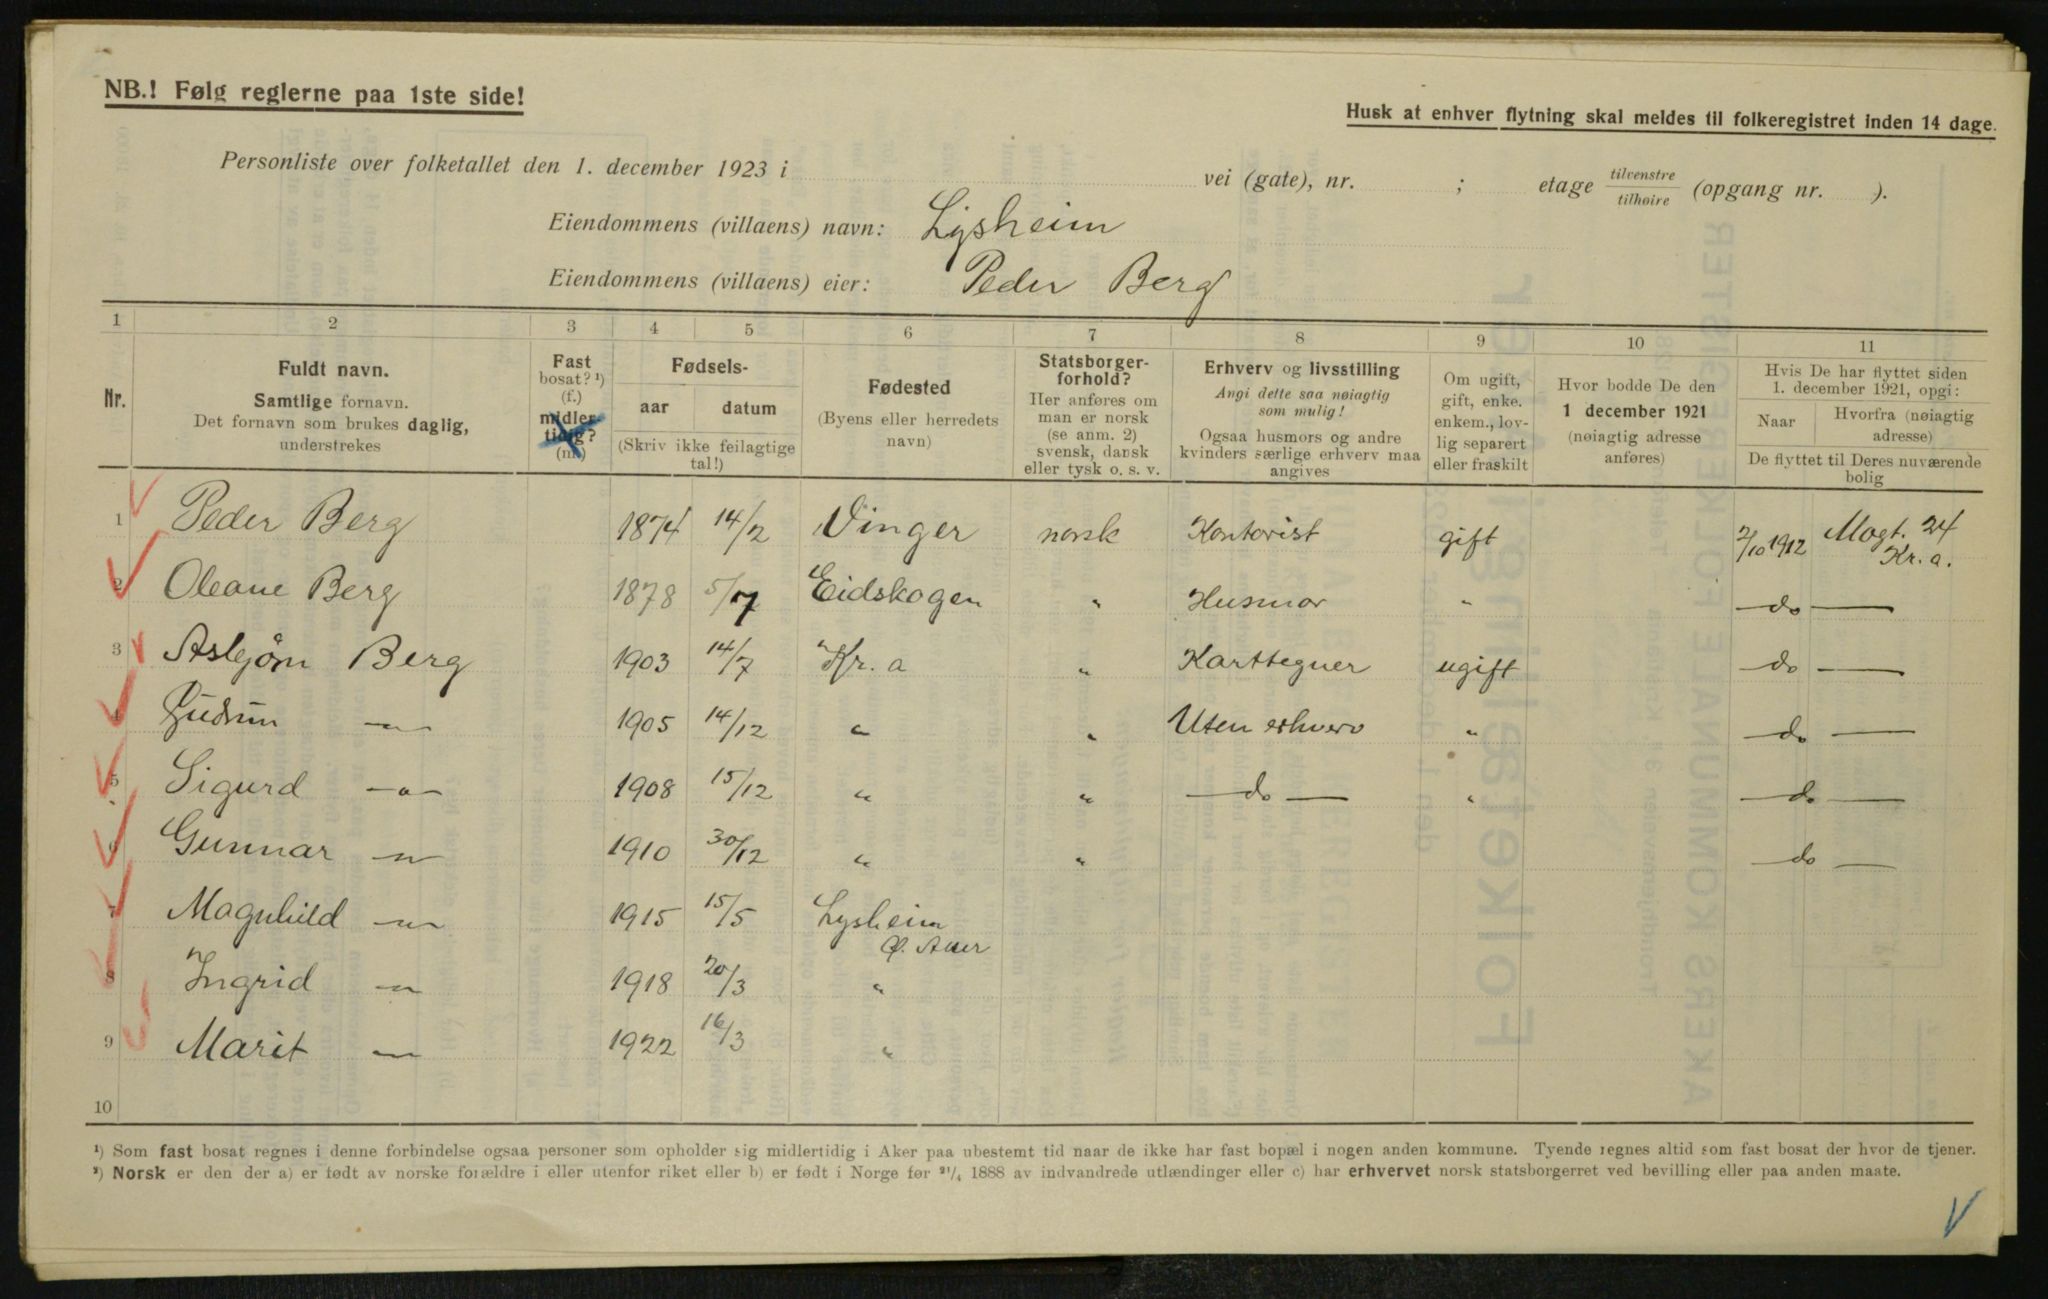 NB.! Følg reglerne paa 1ste side!
Husk at enhver flytning skal meldes til folkeregistret inden 14 dage.
Personliste over folketallet den 1. december 1923 i vei (gate), nr. ; etage tilvenstre / tilhøire (opgang nr. ).
Eiendommens (villaens) navn: Lysheim
Eiendommens (villaens) eier: Peder Berg
1 2 3 4 5 6 7 8 9 10 11
Nr.
Fuldt navn.
Samtlige fornavn.
Det fornavn som brukes daglig,
understrekes
Fast
bosat? ¹)
(f.)
midler
tidig?
(m.)
Fødsels-
aar datum
(Skriv ikke feilagtige
tal!)
Fødested
(Byens eller herredets
navn)
Statsborger-
forhold?
Her anføres om
man er norsk
(se anm. 2)
svensk, dansk
eller tysk o. s. v.
Erhverv og livsstilling
Angi dette saa nøiagtig
som mulig!
Ogsaa husmors og andre
kvinders særlige erhverv maa
angives
Om ugift,
gift, enke.
enkem., lov-
lig separert
eller fraskilt
Hvor bodde De den
1 december 1921
(nøiagtig adresse
anføres)
Hvis De har flyttet siden
1. december 1921, opgi:
Naar Hvorfra (nøiagtig
adresse)
De flyttet til Deres nuværende
bolig
1 Peder Berg 1874 14/2 Vinger norsk Kontorist gift 2/10 1912 Magt. 24
Kr. a.
2 Oleane Berg 1878 5/7 Eidskogen " Husmor " — do —
3 Asbjørn Berg 1903 14/7 Kr. a " Karttegner ugift — do —
4 Gudrun — " — 1905 14/12 " " Uten erhverv " — do —
5 Sigurd — " — 1908 15/12 " " — do — " — do —
6 Gunnar — " — 1910 30/12 " " — do —
7 Magnhild — " — 1915 15/5 Lysheim
Ø. Aker
8 Ingrid — " — 1918 20/3 "
9 Marit — " — 1922 16/3 "
10
¹) Som fast bosat regnes i denne forbindelse ogsaa personer som opholder sig midlertidig i Aker paa ubestemt tid naar de ikke har fast bopæl i nogen anden kommune. Tyende regnes altid som fast bosat der hvor de tjener.
²) Norsk er den der a) er født av norske forældre i eller utenfor riket eller b) er født i Norge før ²¹/₄ 1888 av indvandrede utlændinger eller c) har erhvervet norsk statsborgerret ved bevilling eller paa anden maate.